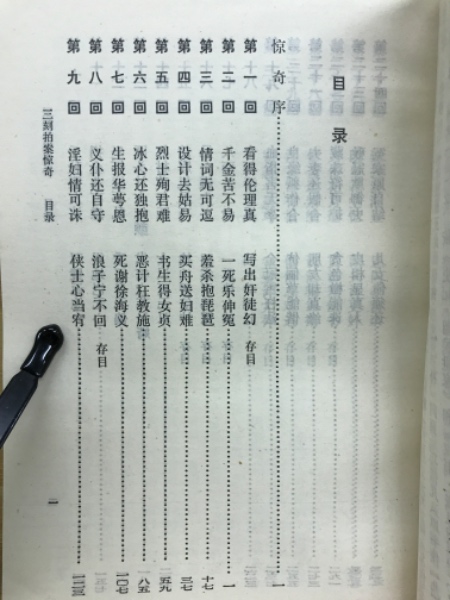 目录
惊奇序 一
第一回 看得伦理真 写出奸徒幻 存目
第二回 千金苦不易 一死乐伸冤 一
第三回 情词无可逗 羞杀抱琵琶 十七
第四回 设计去姑易 买舟送妇难 三七
第五回 烈士殉君难 书生得女贞 五九
第六回 冰心还独抱 恶计枉教施 八五
第七回 生报华萼恩 死谢徐海义 一〇七
第八回 义仆还自守 浪子宁不回 存目
第九回 淫妇情可诛 侠士心当宥
三刻拍案惊奇 目录
一